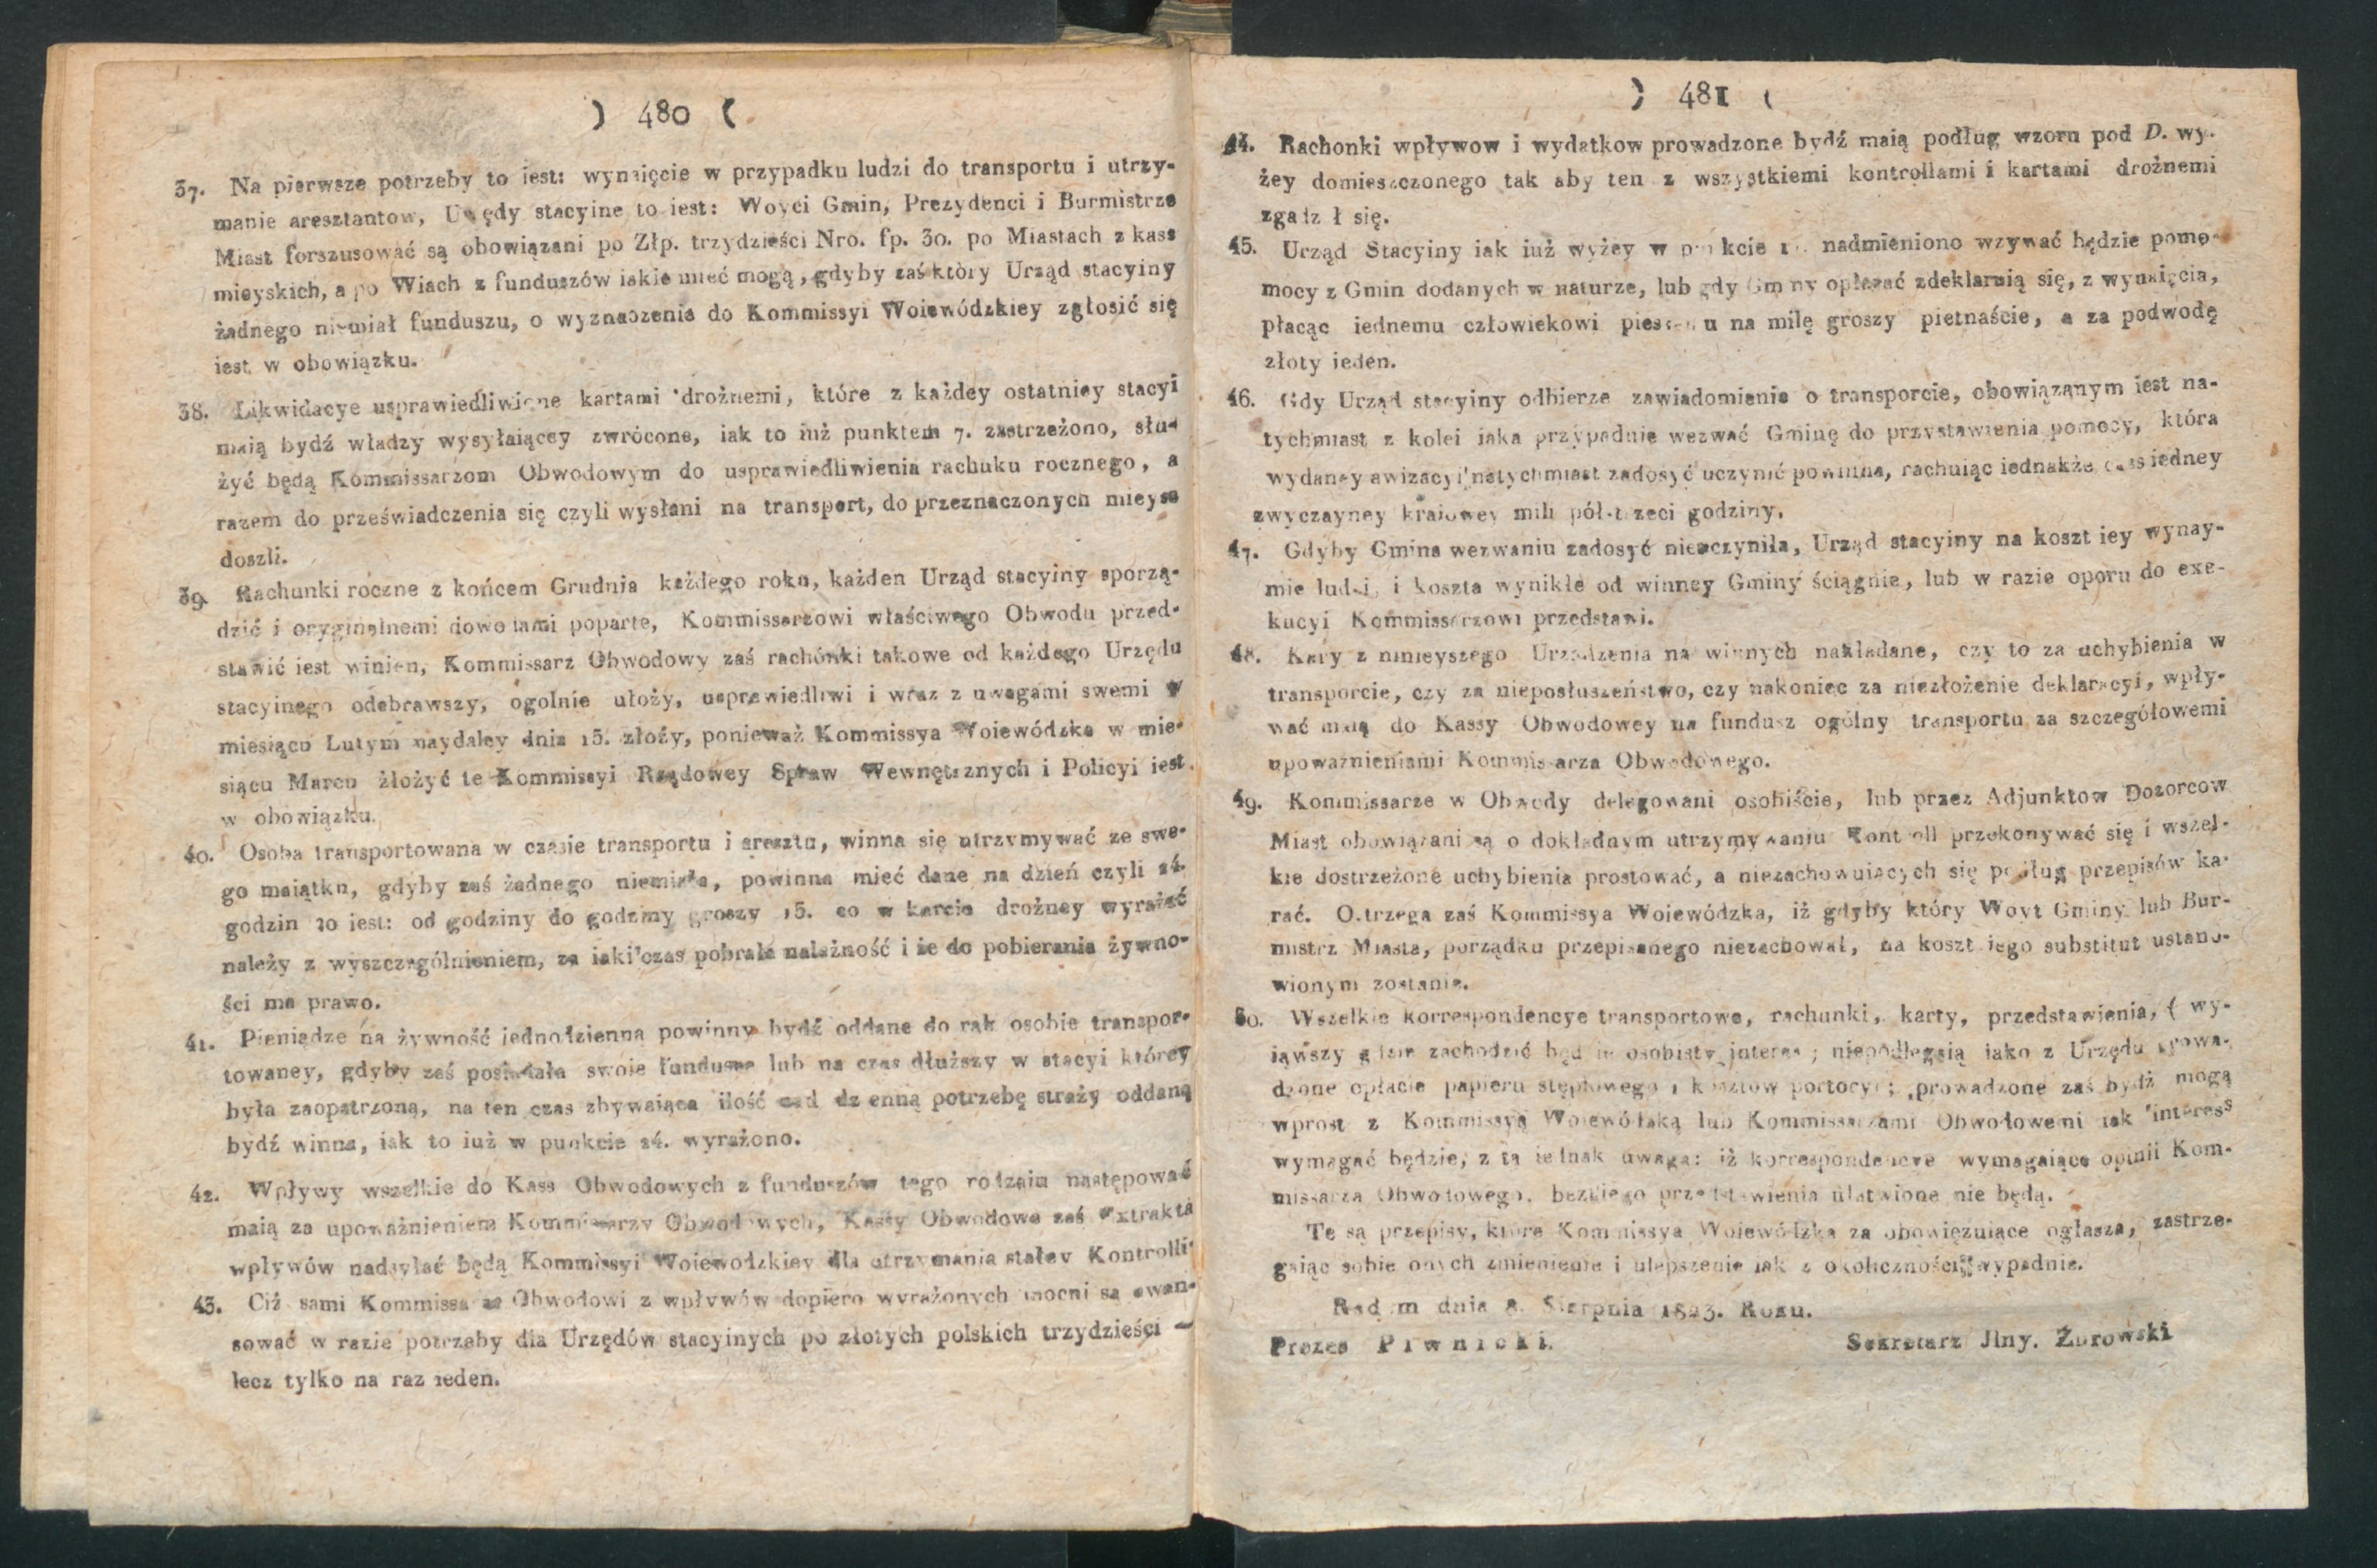 ) 480 (
37. Na pierwsze potrzeby to iest: wynaięcie w przypadku ludzi do transportu i utrzy-
manie aresztantow, Urzędy stacyine to iest: Woyci Gmin, Prezydenci i Burmistrze
Miast forszusować są obowiązani po Złp. trzydzieści Nro. fp. 30. po Miastach z kass
mieyskich, a po Wiach z funduszów iakie mieć mogą, gdyby zaś który Urząd stacyiny
żadnego niemiał funduszu, o wyznaczenie do Kommissyi Woiewódzkiey zgłosić się
iest w obowiązku.
38. Likwidacye usprawiedliwione kartami drożnemi, które z każdey ostatniey stacyi
maią bydź władzy wysyłaiącey zwrócone, iak to iuż punktem 7. zastrzeżono, słu-
żyć będą Kommissarzom Obwodowym do usprawiedliwienia rachuku rocznego, a
razem do przeświadczenia się czyli wysłani na transport, do przeznaczonych mieysc
doszli.
39. Rachunki roczne z końcem Grudnia każdego roku, każden Urząd stacyiny sporzą-
dzić i oryginalnemi dowodami poparte, Kommissarzowi właściwego Obwodu przed-
stawić iest winien, Kommissarz Obwodowy zaś rachónki takowe od każdego Urzędu
stacyinego odebrawszy, ogolnie ułoży, usprawiedliwi i wraz z uwagami swemi w
miesiącu Lutym naydaley dnia 15. złoży, ponieważ Kommissya Woiewódzka w mie-
siącu Marcu złożyć te Kommissyi Rządowey Spraw Wewnętrznych i Policyi iest
w obowiązku.
40. Osoba transportowana w czasie transportu i aresztu, winna się utrzymywać ze swe-
go maiątku, gdyby zaś żadnego niemiała, powinna mieć dane na dzień czyli 24.
godzin to iest: od godziny do godziny groszy 15. co w karcie drożney wyrażać
należy z wyszczególnieniem, za iaki czas pobrała należność i że do pobierania żywno-
ści ma prawo.
41. Pieniądze na żywność jednodzienna powinny bydź oddane do rąk osobie transpor-
towaney, gdyby zaś posiadała swoie fundusze lub na czas dłuższy w stacyi którey
była zaopatrzoną, na ten czas zbywaiąca ilość nad dzienną potrzebę straży oddaną
bydź winna, iak to iuż w punkcie 24. wyrażono.
42. Wpływy wszelkie do Kass Obwodowych z funduszów tego rodzaiu następować
maią za upoważnieniem Kommissarzy Obwodowych, Kassy Obwodowe zaś extrakta
wpływów nadsyłać będą Kommissyi Woiewodzkiey dla utrzymania stałey Kontrolli
43. Ciż sami Kommissarze Obwodowi z wpływów dopiero wyrażonych mocni są awan-
sować w razie potrzeby dla Urzędów stacyinych po złotych polskich trzydzieści —
lecz tylko na raz ieden.
) 481 (
44. Rachonki wpływow i wydatkow prowadzone bydź maią podług wzoru pod D. wy-
żey domieszczonego tak aby ten z wszystkiemi kontrollami i kartami drożnemi
zgadz ł się.
45. Urząd Stacyiny iak iuż wyżey w punkcie nadmieniono wzywać będzie pomo-
mocy z Gmin dodanych w naturze, lub gdy Gminy opłacać zdeklaruią się, z wynaięcia,
płacąc iednemu człowiekowi pieszemu na milę groszy pietnaście, a za podwodę
złoty ieden.
46. Gdy Urząd stacyiny odbierze zawiadomienie o transporcie, obowiązanym iest na-
tychmiast z kolei iaka przypadnie wezwać Gminę do przystawienia pomocy, która
wydaney awizacyi natychmiast zadosyć uczynić powinna, rachuiąc iednakże czas iedney
zwyczayney kraiowey mili pół-trzeci godziny.
47. Gdyby Gmina wezwaniu zadosyć nieuczyniła, Urząd stacyiny na koszt iey wynay-
mie ludzi, i koszta wynikłe od winney Gminy ściągnie, lub w razie oporu do exe-
kucyi Kommissarzowi przedstawi.
48. Kary z ninieyszego Urządzenia na winnych nakładane, czy to za uchybienia w
transporcie, czy za nieposłuszeństwo, czy nakoniec za niezłożenie deklaracyi, wpły-
wać maią do Kassy Obwodowey na fundusz ogólny transportu za szczegółowemi
upoważnieniami Kommissarza Obwodowego.
49. Kommissarze w Obwody delegowani osobiście, lub przez Adjunktow Dozorcow
Miast obowiązani są o dokładnym utrzymywaniu Kontroll przekonywać się i wszel-
kie dostrzeżone uchybienia prostować, a niezachowuiących się podług przepisów ka-
rać. Ostrzega zaś Kommissya Woiewódzka, iż gdyby który Woyt Gminy lub Bur-
mistrz Miasta, porządku przepisanego niezachował, na koszt iego substitut ustano-
wionym zostanie.
50. Wszelkie korrespondencye transportowe, rachunki, karty, przedstawienia, ( wy-
iąwszy gdzie zachodzić będzie osobisty interes ; niepodlegaią iako z Urzędu prowa-
dzone opłacie papieru stęplowego i kosztow portoryi; prowadzone zaś bydź mogą
wprost z Kommissyą Woiewódzką lub Kommissarzami Obwodowemi iak interess
wymagać będzie, z tą iednak uwagą: iż korrespondencye wymagaiące opinii Kom-
missarza Obwodowego, bez tego przedstawienia ułatwione nie będą.
Te są przepisy, które Kommissya Woiewódzka za obowięzuiące ogłasza, zastrze-
gaiąc sobie onych zmienienie i ulepszenie iak z okoliczności wypadnie.
Radom dnia 8. Sierpnia 1823. Roku.
Prezes Piwnicki.
Sekretarz Jlny. Żurowski